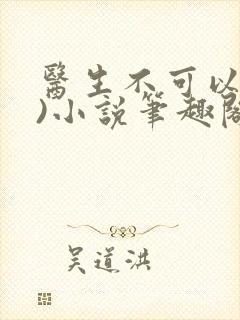 醫生不可以
)小說筆趣閣
吳道洪